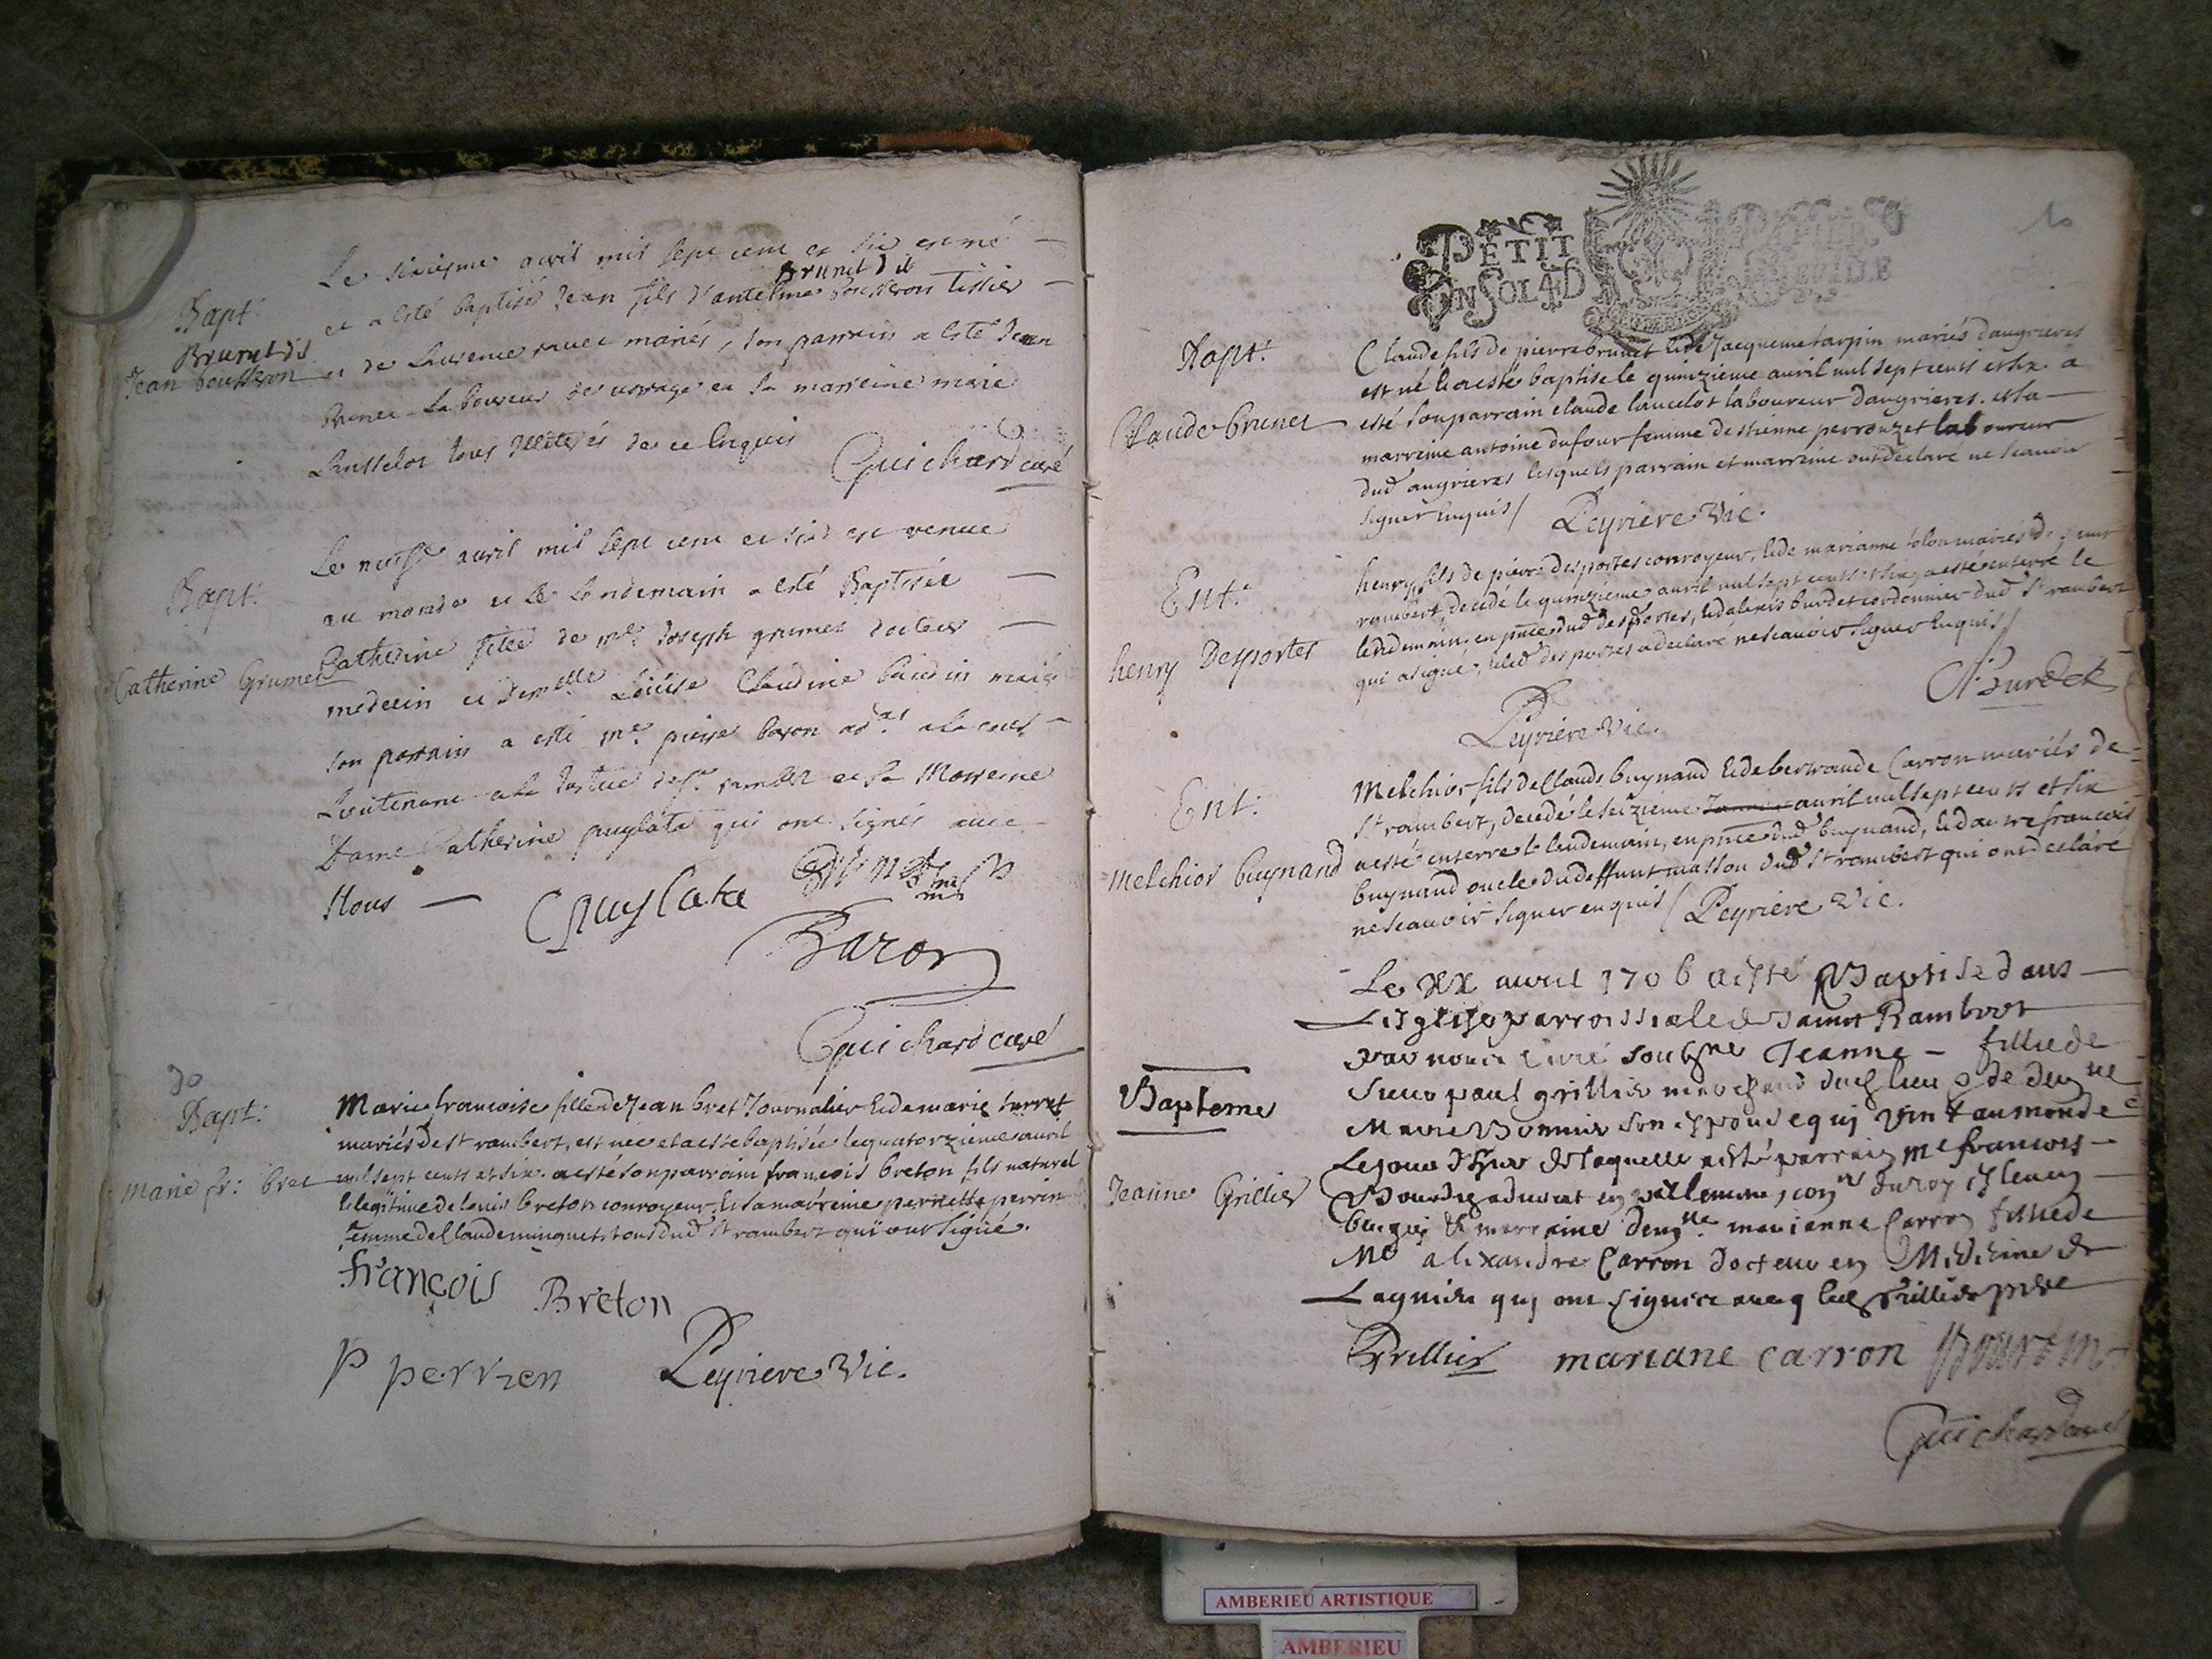 Le sixiesme avril mil sept cent et six est né
Brunet dit
et a esté baptisé Jean fils d'antelme bousseron tissier
Bapt.
Brunet dit
Jean bousseron
et de Laurence mariés, son parrain a esté Jean
Laboureur de et sa marreine marie
Lansselot tous illiterés de ce Enquis
Guichard curé
Le neufe avril mil sept cent et six est venue
au monde et le Lendemain a esté Baptisée
Bapt.
Catherine Grumet
Catherine fillee de mre Joseph grumet docteur
medecin et demelle Louise Claudine baudin mariés
son parrain a esté me pierre baron adat a la cour
Lieutenant a la Justice de St rambert et sa Marreine
Dame Catherine puylata qui ont signés avec
Nous
C puylata
Grumet
Baron
Guichard curé
30
Bapt.
marie fr: bret
Marie francoise fille de Jean bret Journalier et de marie
mariés de st rambert, est née et a esté baptisée le quatorzieme avril
mil sept cents et six. a esté son parrain francois breton fils naturel
et legitime de louis breton conroyeur, et sa marreine pernette perrin
femme de Claude minguet, tous dud St rambert qui ont signé.
françois Breton
p perrien Peyriere Vic.
10
PETIT PAPIER
UN SOL 4 D
Bapt.
Claude brunet
Claude fils de pierre brunet et de Jacqueme tarpin mariés d'angrieres
est né et a esté baptisé le quinzieme avril mil sept cents et six a
esté son parrain claude lancelot laboureur d'angrieres. et sa
marreine antoine dufour femme d'estienne perrouzet laboureur
dud angrieres lesquels parrain et marreine ont declaré ne scavoir
signer Enquis / Peyriere Vic.
Ent.
henry Desportes
henry fils de pierre desportes conroyeur, et de marianne tolon mariés de saint
rambert, decedé le quinzieme avril mil sept cents et six, a esté enterré le
lendemain, en pnce dud desportes, et d'alexis burdet cordonnier dud St rambert
qui a signé, et led desportes a declaré ne scavoir signer Enquis /
A: Burdet
Peyriere Vic.
Ent.
Melchior buynand
Melchior fils de Claude buynand et de bertrande Carron mariés de
St rambert, decedé le seizieme avril mil sept cents et six
a esté enterré le lendemain, en pnce dud buynand, et d'autre francois
buynand oncle du deffunt masson dud St rambert qui ont declaré
ne scavoir signer enquis / Peyriere Vic.
Le XX avril 1706 a esté Baptisé dans
L'Eglise parroissiale de saint Rambert
par nous Curé soubsne Jeanne - fillie de
Bapteme
Jeanne Grillier
sieur paul grillier marchand dud lieu & de demlle
Marie Bonnier son Espouse qui vint au monde
Le jour d'hier de laquelle a esté parrain me francois
advocat en parlement, conr du roy Esleu en
bugey & marraine demlle marianne Carron fillie de
Me alexandre Carron docteur en Medicine de
Lagnieu qui ont signés avec led Grillier pere
Grillier mariane carron
Guichard curé
AMBERIEU ARTISTIQUE
AMBERIEU